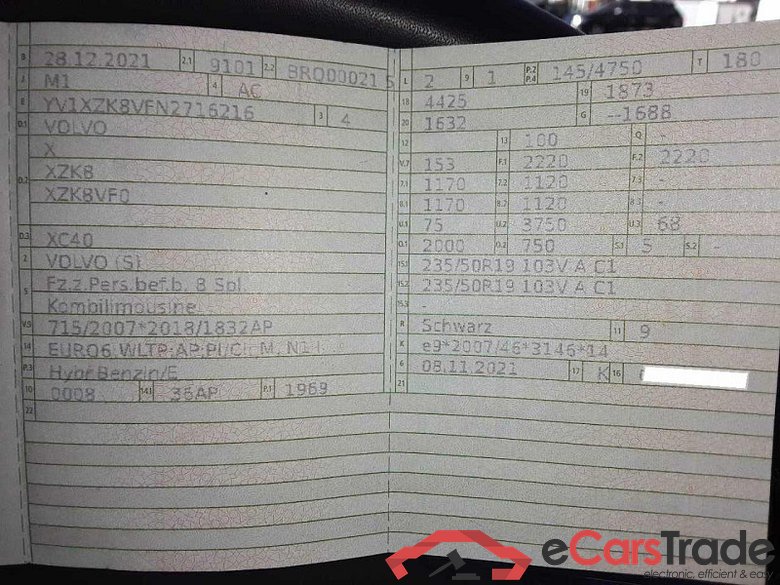 B 28.12.2021 2.1 9101 2.2 BRO00021 5
J M1 4 AC
E YV1XZK8VFN2716216 3 4
D.1 VOLVO
X
D.2 XZK8
XZK8VF0
D.3 XC40
2 VOLVO (S)
5 Fz.z.Pers.bef.b. 8 Spl.
Kombilimousine
V.9 715/2007*2018/1832AP
14 EURO6 WLTP;AP;PI/CI M, N1 I
P.3 Hybr.Benzin/E
10 0008 14.1 36AP P.1 1969
22
L 2 9 1 P.2 P.4 145/4750 T 180
18 4425 19 1873
20 1632 G --1688
12 13 100 Q -
V.7 153 F.1 2220 F.2 2220
7.1 1170 7.2 1120 7.3 -
8.1 1170 8.2 1120 8.3 -
U.1 75 U.2 3750 U.3 68
O.1 2000 O.2 750 S.1 5 S.2 -
15.1 235/50R19 103V A C1
15.2 235/50R19 103V A C1
15.3 -
R Schwarz 11 9
K e9*2007/46*3146*14
6 08.11.2021 17 K 16
21
eCarsTrade
electronic, efficient & eas